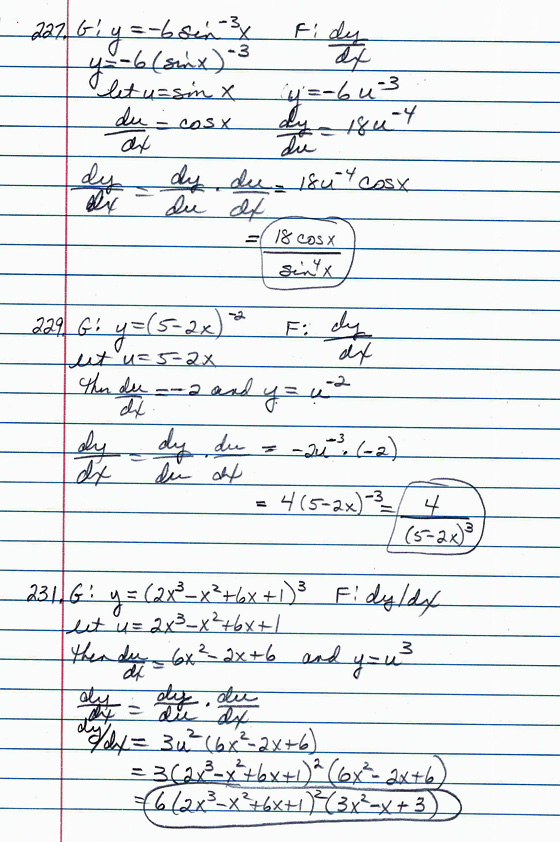 227. G: y = -6 sin⁻³x F: dy/dx
y = -6(sin x)⁻³
let u = sin x y = -6u⁻³
du/dx = cos x dy/du = 18u⁻⁴
dy/dx = dy/du · du/dx = 18u⁻⁴ cos x
= 18 cos x / sin⁴x
229. G: y = (5-2x)⁻² F: dy/dx
let u = 5-2x
then du/dx = -2 and y = u⁻²
dy/dx = dy/du · du/dx = -2u⁻³ · (-2)
= 4(5-2x)⁻³ = 4/(5-2x)³
231. G: y = (2x³-x²+6x+1)³ F: dy/dx
let u = 2x³-x²+6x+1
then du/dx = 6x²-2x+6 and y = u³
dy/dx = dy/du · du/dx
dy/dx = 3u²(6x²-2x+6)
= 3(2x³-x²+6x+1)²(6x²-2x+6)
= 6(2x³-x²+6x+1)²(3x²-x+3)